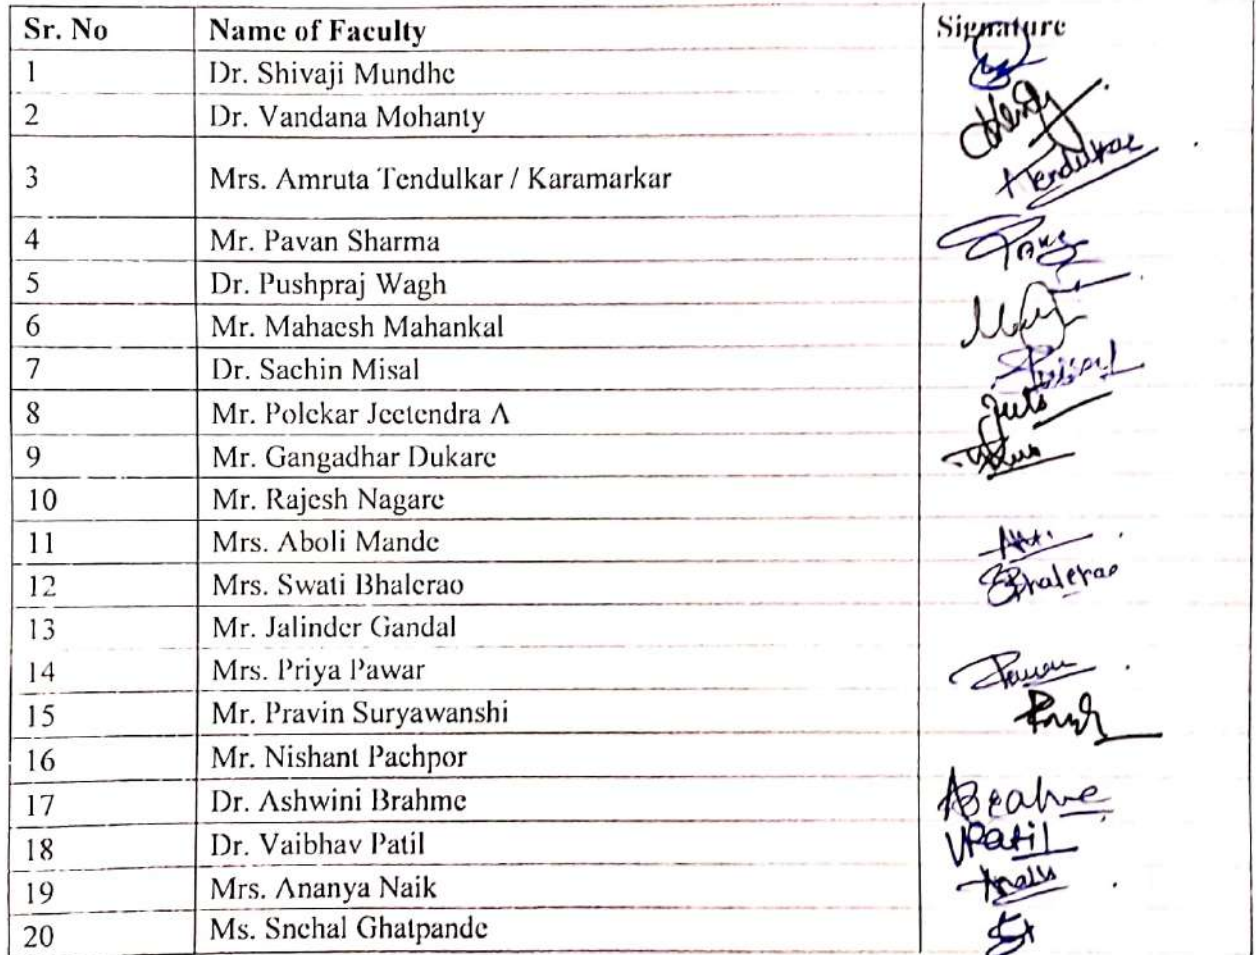 Sr. No Name of Faculty Signature
1 Dr. Shivaji Mundhe
2 Dr. Vandana Mohanty
3 Mrs. Amruta Tendulkar / Karamarkar Tendulkar
4 Mr. Pavan Sharma
5 Dr. Pushpraj Wagh
6 Mr. Mahaesh Mahankal
7 Dr. Sachin Misal
8 Mr. Polekar Jeetendra A
9 Mr. Gangadhar Dukare
10 Mr. Rajesh Nagare
11 Mrs. Aboli Mande
12 Mrs. Swati Bhalerao SBhalerao
13 Mr. Jalinder Gandal
14 Mrs. Priya Pawar
15 Mr. Pravin Suryawanshi
16 Mr. Nishant Pachpor
17 Dr. Ashwini Brahme ABrahme
18 Dr. Vaibhav Patil VPatil
19 Mrs. Ananya Naik
20 Ms. Snehal Ghatpande